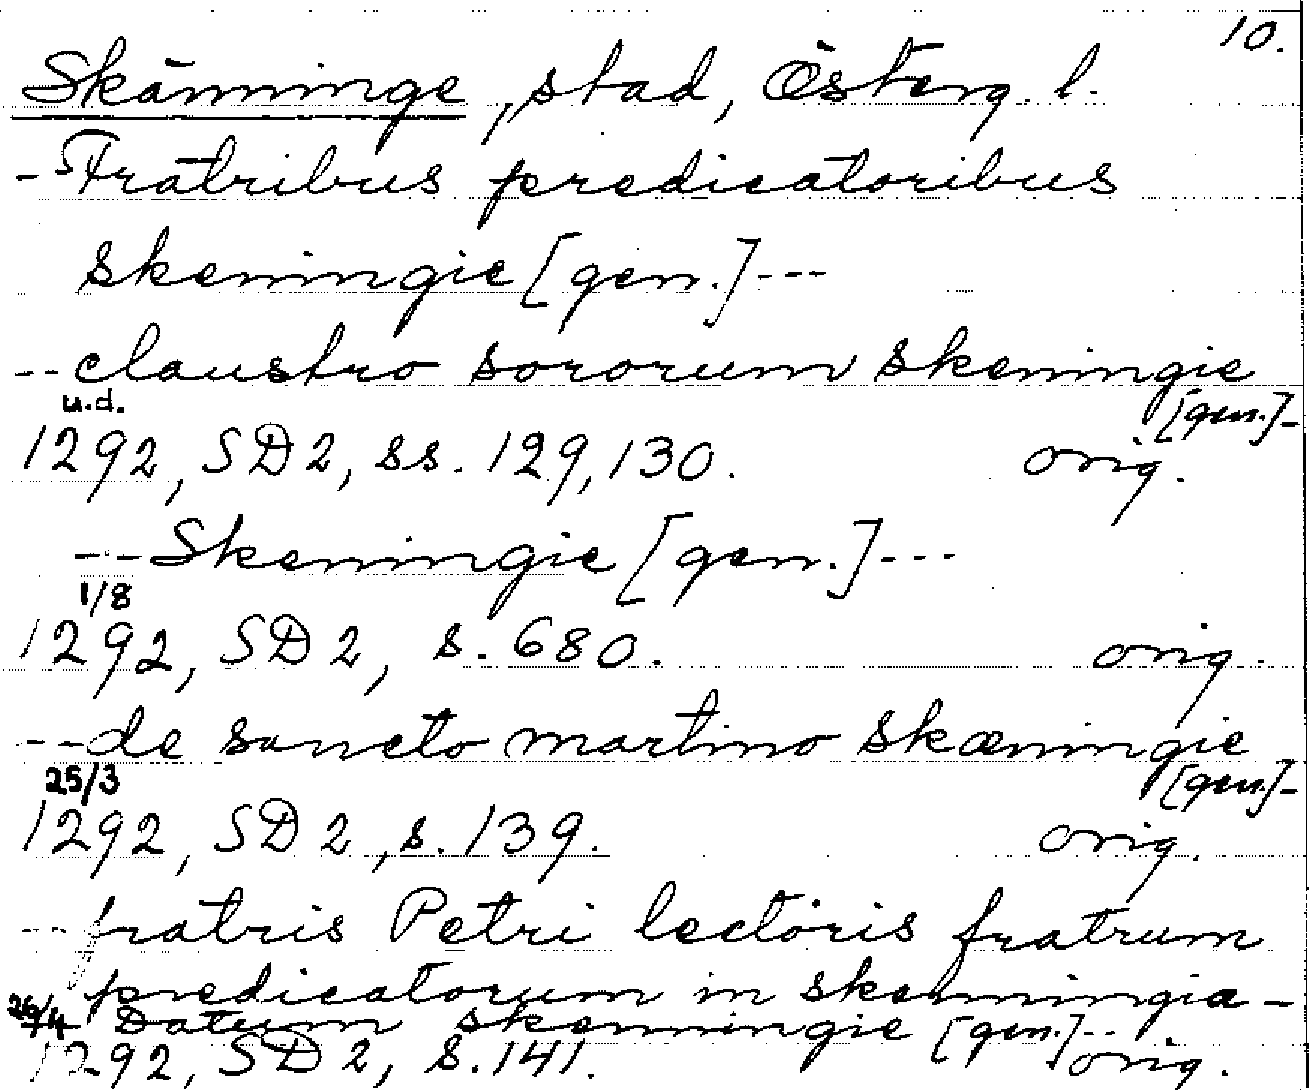 10.
Skänninge, stad, Österg. l.
- Fratribus predicatoribus
skeningie [gen.] ---
-- claustro sororum skeningie
u.d. [gen.] -
1292, SD 2, ss. 129, 130. orig.
--- Skeningie [gen.] ---
1/8
1292, SD 2, s. 680. orig.
--- de sancto martino skæningie
25/3 [gen.] -
1292, SD 2, s. 139. orig.
-- fratris Petri lectoris fratrum
predicatorum in skenningia -
26/4 - Datum skenningie [gen.] --
1292, SD 2, s. 141. orig.